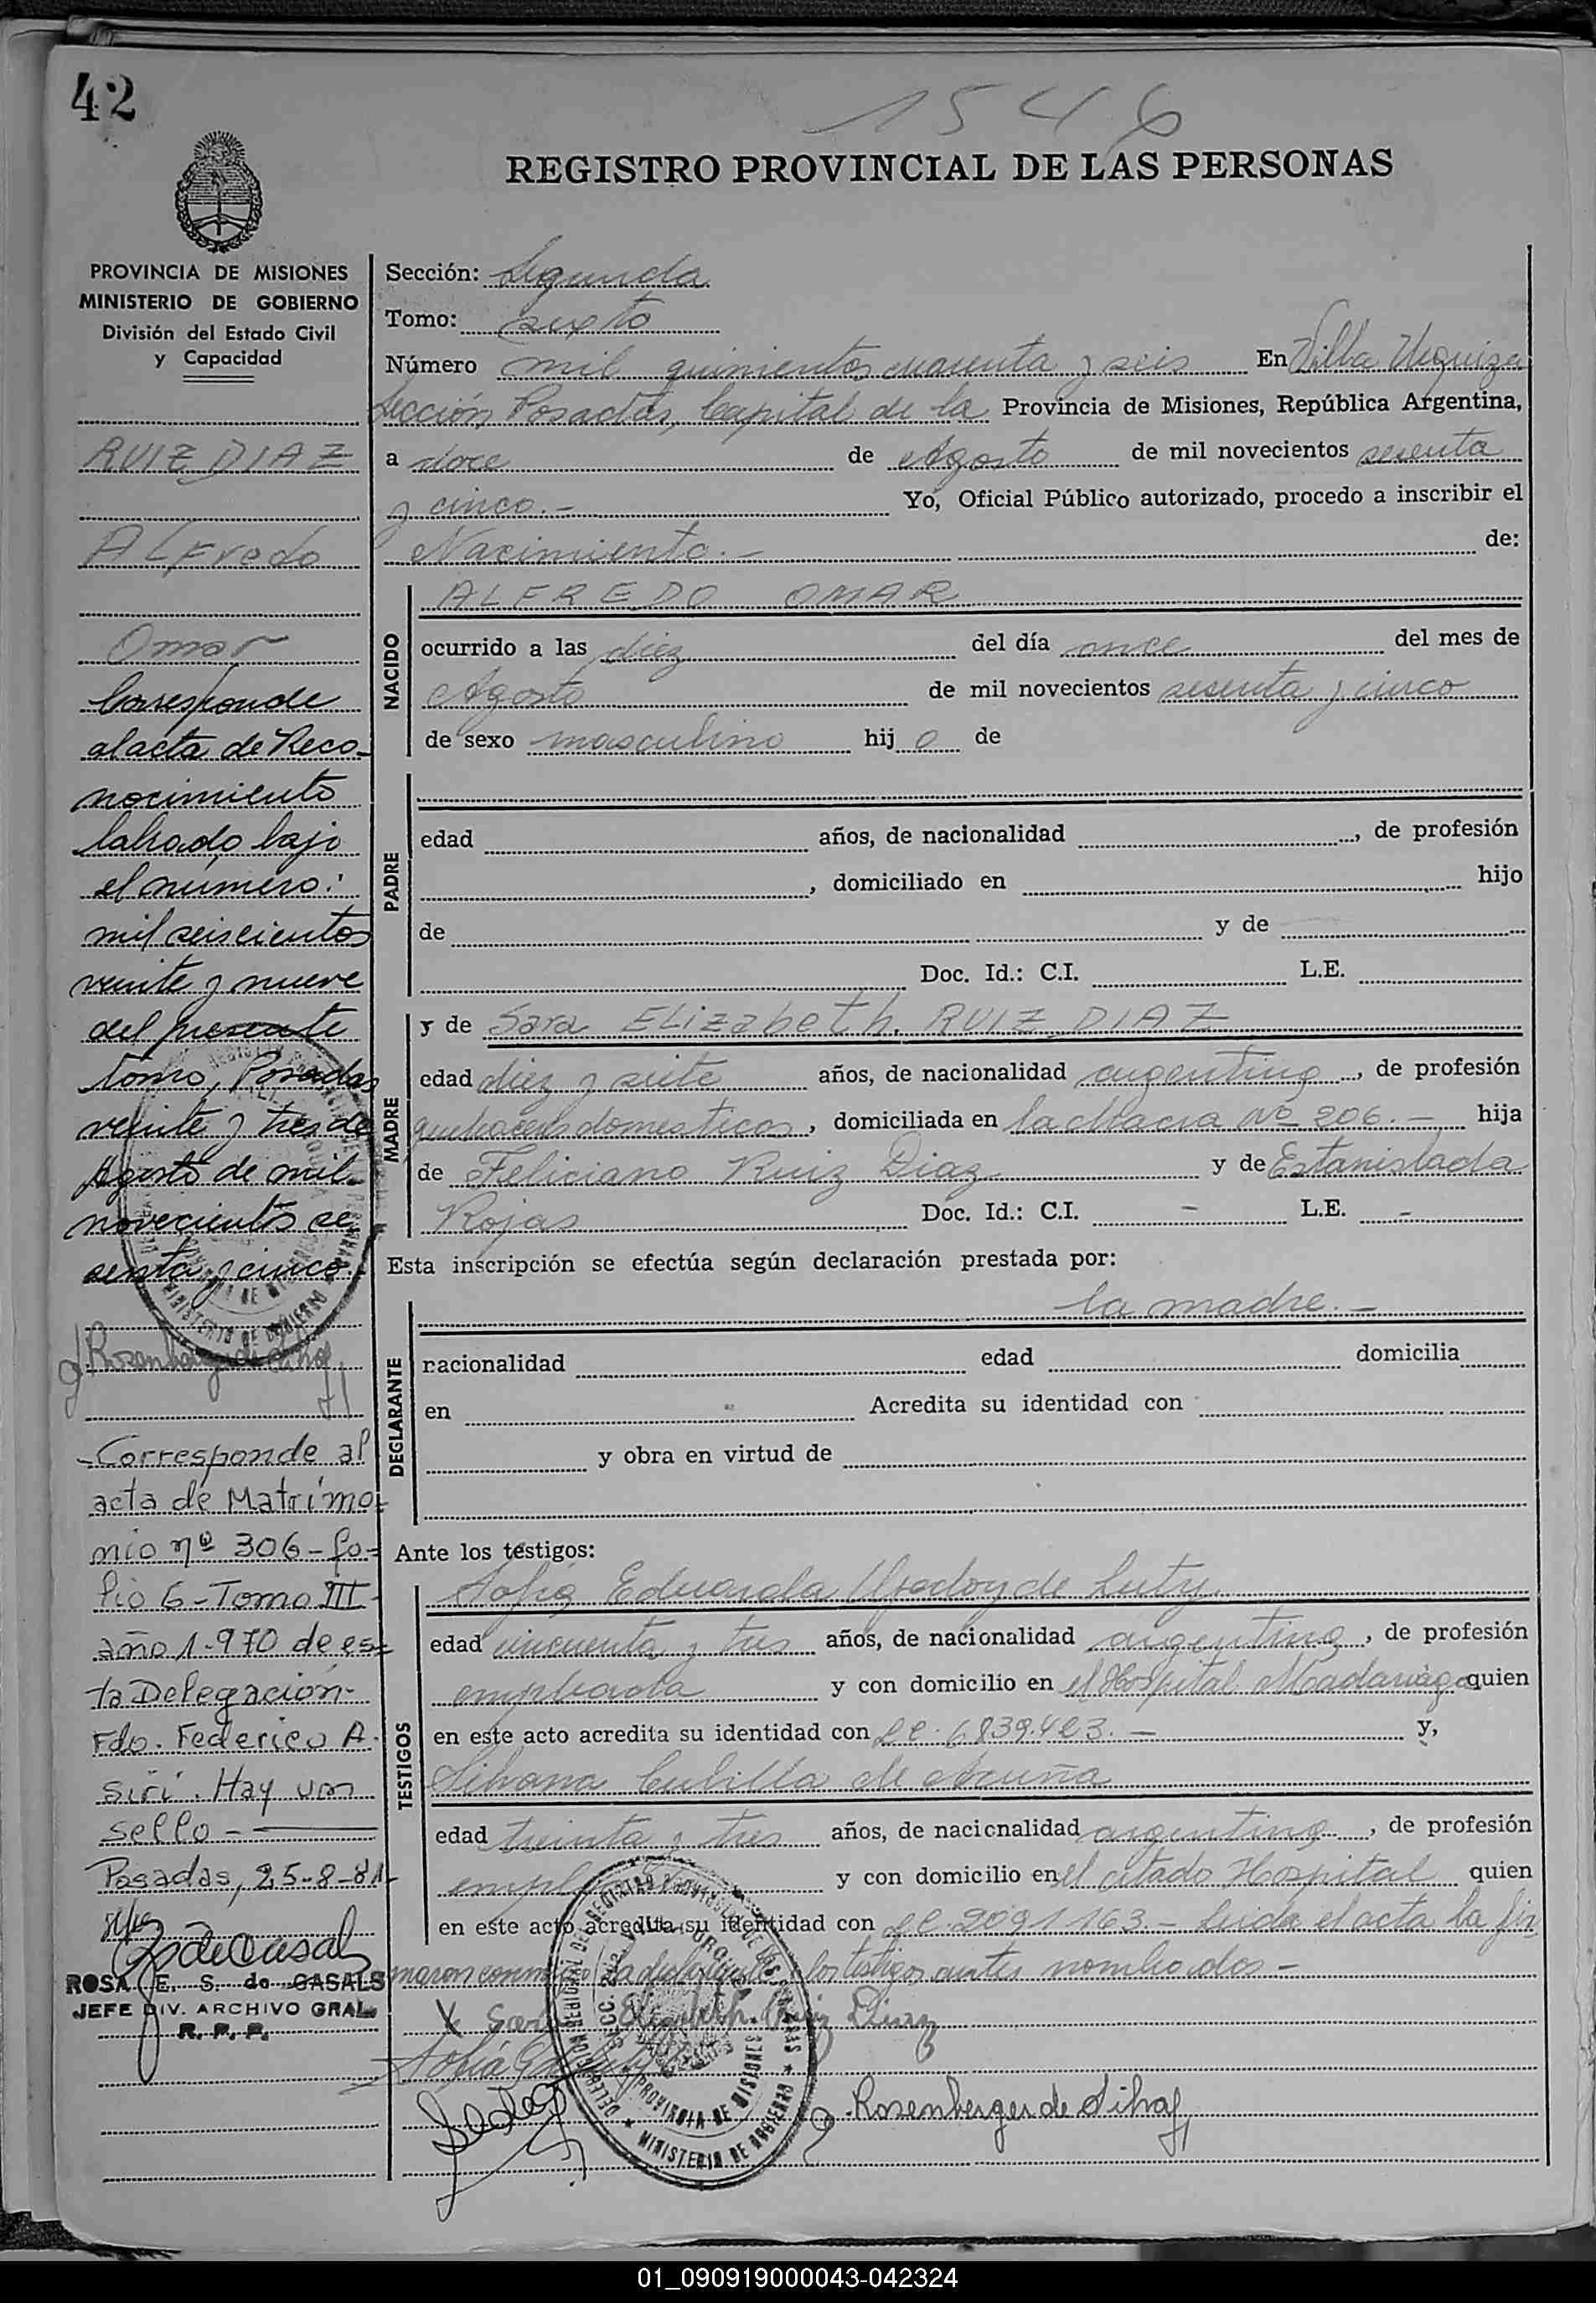 42
1546
REGISTRO PROVINCIAL DE LAS PERSONAS
PROVINCIA DE MISIONES
MINISTERIO DE GOBIERNO
División del Estado Civil
y Capacidad
RUIZ DIAZ
ALFredo
Omar
Corresponde
al acta de Reco-
nocimiento
labrado bajo
el número:
mil seiscientos
veinte y nueve
del presente
tomo, Posadas
veinte y tres de
Agosto de mil
novecientos se
senta y cinco.
Corresponde al
acta de Matrimo-
nio nº 306 - fo-
lio 6 - Tomo III
año 1.970 de es-
ta Delegación-
Fdo. Federico A.
Siri. Hay un
sello -
Posadas, 25-8-81-
ROSA E. S. de CASALS
JEFE DIV. ARCHIVO GRAL.
R. P. P.
Sección: Segunda
Tomo: sexto
Número mil quinientos cuarenta y seis En Villa Urquiza
Sección Posadas, Capital de la Provincia de Misiones, República Argentina,
a doce de Agosto de mil novecientos sesenta
y cinco.- Yo, Oficial Público autorizado, procedo a inscribir el
Nacimiento.- de:
NACIDO
ALFREDO OMAR
ocurrido a las diez del día once del mes de
Agosto de mil novecientos sesenta y cinco
de sexo masculino hijo de
PADRE
edad años, de nacionalidad , de profesión
, domiciliado en hijo
de y de
Doc. Id.: C.I. L.E.
MADRE
y de Sara ELizabeth. RUIZ DIAZ
edad diez y siete años, de nacionalidad argentina, de profesión
quehaceres domesticos, domiciliada en la chacra Nº 206.- hija
de Feliciano Ruiz Diaz y de Estanislada
Rojas Doc. Id.: C.I. - L.E. -
Esta inscripción se efectúa según declaración prestada por:
DECLARANTE
la madre.-
racionalidad edad domicilia
en Acredita su identidad con
y obra en virtud de
Ante los testigos:
TESTIGOS
Sofia Eduarda de
edad cincuenta y tres años, de nacionalidad argentina, de profesión
empleada y con domicilio en el Hospital Madariaga quien
en este acto acredita su identidad con y,
Silvana Cubilla de Acuña
edad treinta y tres años, de nacionalidad argentina, de profesión
y con domicilio en el citado Hospital quien
en este acto acredita su identidad con 2091163.- Leida el acta la fir
maron conmigo la declarante y los testigos antes nombrados -
X Sara Elizabeth Ruiz Diaz
Sofía
Rosenberger de
DELEGACION REGIONAL DEL REGISTRO PROVINCIAL DE LAS PERSONAS
PROVINCIA DE MISIONES
MINISTERIO DE GOBIERNO
01_090919000043-042324